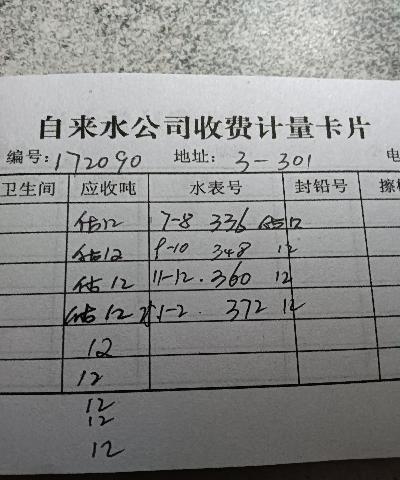 自来水公司收费计量卡片
编号:172090 地址: 3-301 电
卫生间 应收吨 水表号 封铅号 擦
估12 7-8 336 估12
估12 9-10 348 12
估12 11-12. 360 12
估12 1-2. 372 12
12
12
12
12
12